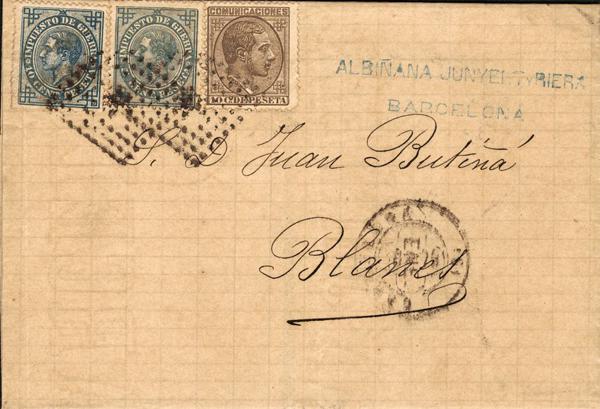 IMPUESTO DE GUERRA
IMPUESTO DE GUERRA
COMUNICACIONES
10 C. DE PESETA
ALBIÑANA JUNYENT Y RIERA
BARCELONA
S. D. Juan Butiñá
Blanes